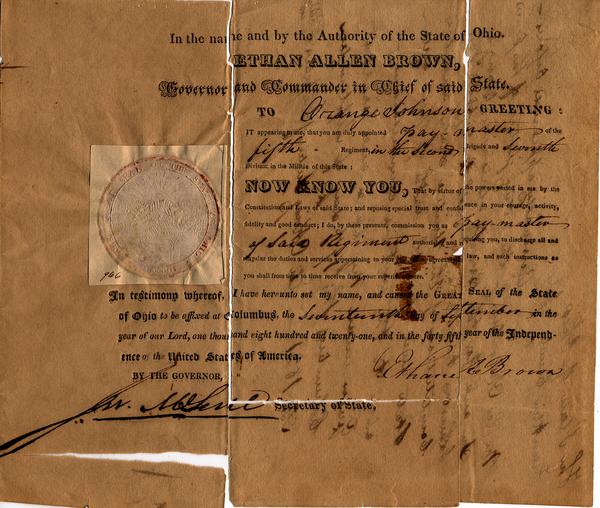 In the name and by the Authority of the State of Ohio.
ETHAN ALLEN BROWN,
Governor and Commander in Chief of said State.
TO Orange Johnson GREETING:
IT appearing to me, that you are duly appointed pay-master of the
fifth - Regiment, in the second Brigade and Seventh
Division in the Militia of this State:
NOW KNOW YOU, That by virtue of the powers vested in me by the
Constitution and Laws of said State; and reposing special trust and confidence in your courage, activity,
fidelity and good conduct; I do, by these presents, commission you as pay-master
of said Regiment authorising and requiring you, to discharge all and
singular the duties and services appertaining to your law, and such instructions as
you shall from time to time receive from your superior
966
In testimony whereof, I have hereunto set my name, and caused the GREAT SEAL of the State
of Ohio to be affixed at Columbus, the Seventeenth day of September in the
year of our Lord, one thousand eight hundred and twenty-one, and in the forty fifth year of the Independ-
ence of the United States of America.
Ethan A Brown
BY THE GOVERNOR,
Jer. McLene Secretary of State.